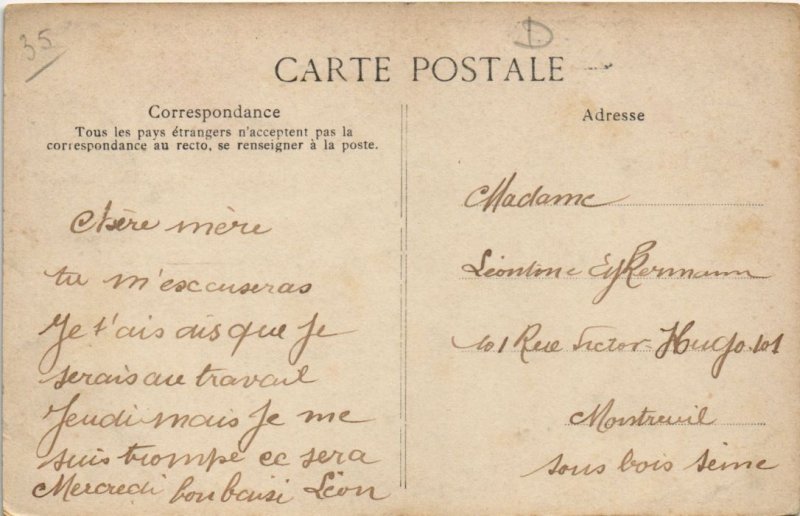 35
D
CARTE POSTALE
Correspondance
Tous les pays étrangers n'acceptent pas la
correspondance au recto, se renseigner à la poste.
Chère mère
tu m'excuseras
Je t'ais dis que Je
serais au travail
Jeudi mais Je me
suis trompe ce sera
Mercredi bon baisé Léon
Adresse
Madame
Léontine Eykermann
101 Rue Victor-Hugo 101
Montreuil
sous bois seine